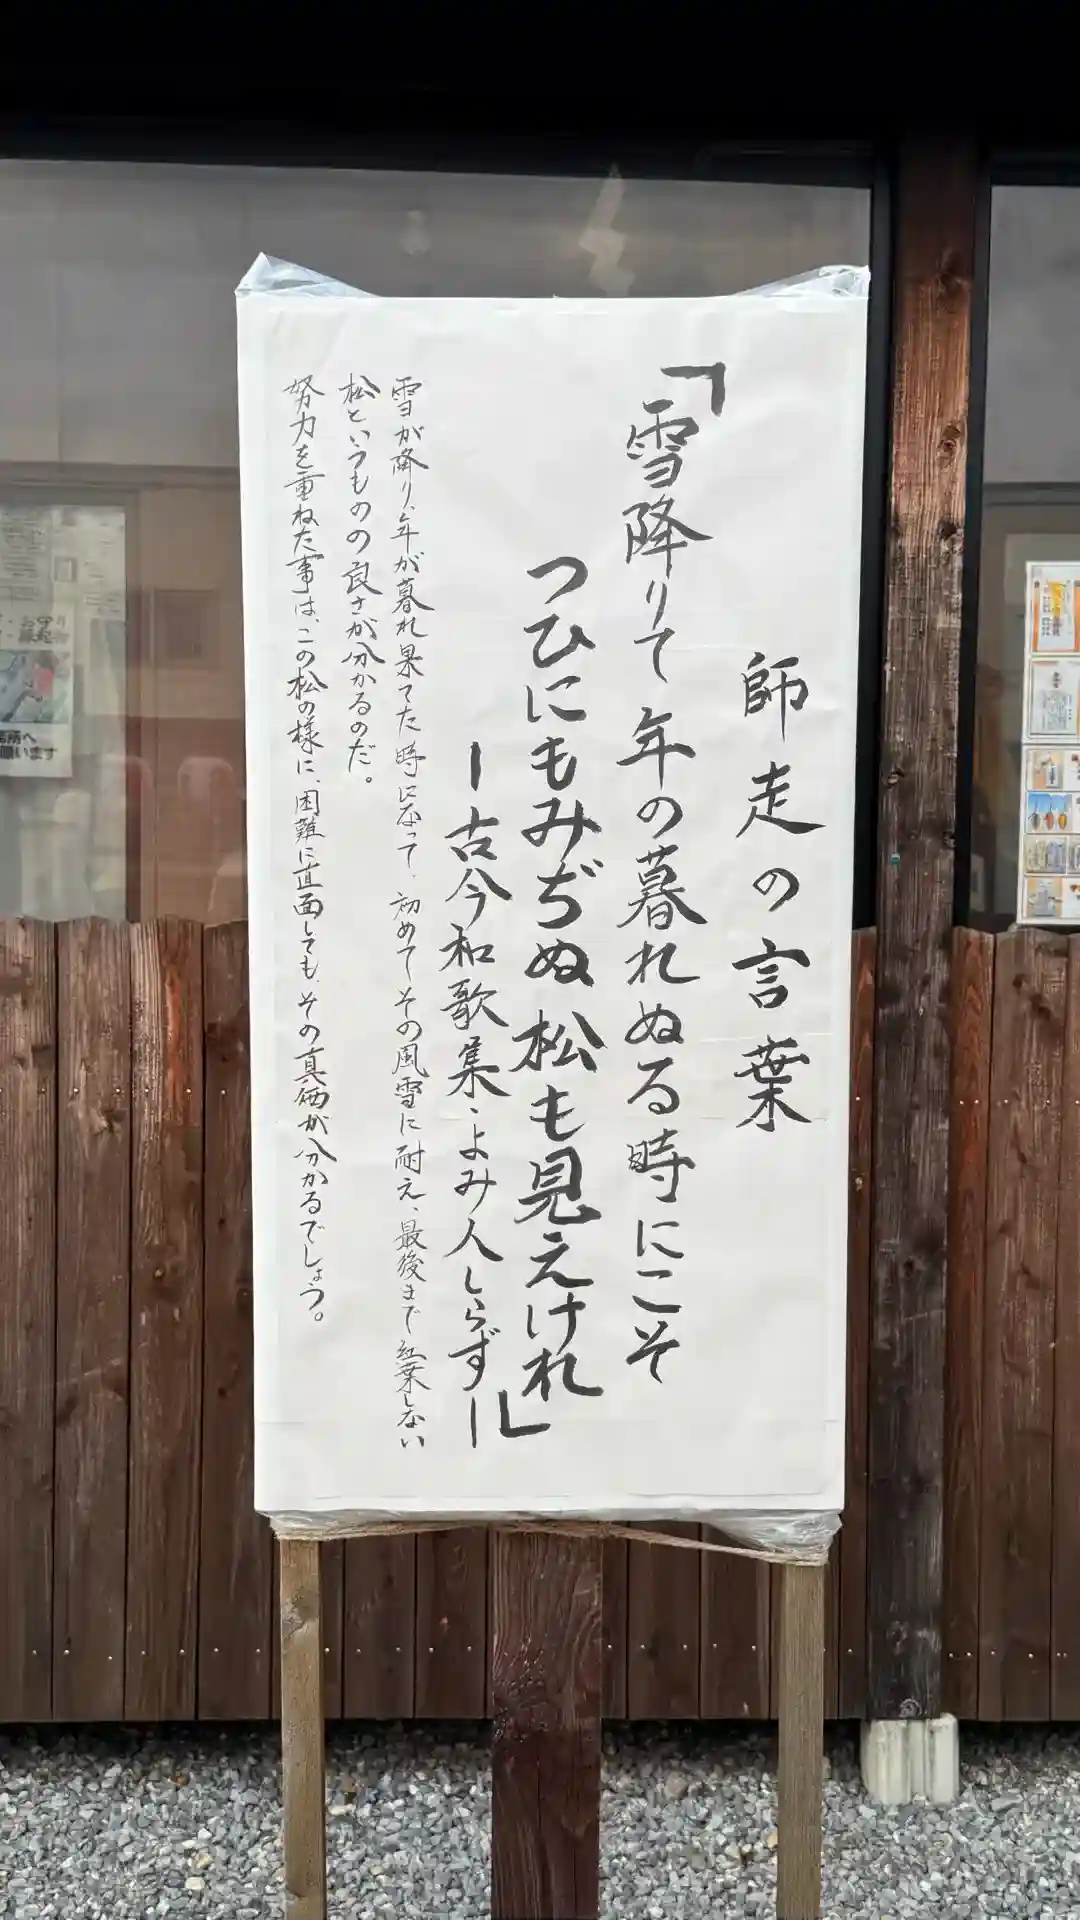 師走の言葉
「雪降りて年の暮れぬる時にこそ
つひにもみぢぬ松も見えけれ」
―古今和歌集・よみ人しらず―
雪が降り、年が暮れ果てた時になって、初めてその風雪に耐え、最後まで紅葉しない
松というものの良さが分かるのだ。
努力を重ねた事は、この松の様に、困難に直面しても、その真価が分かるでしょう。